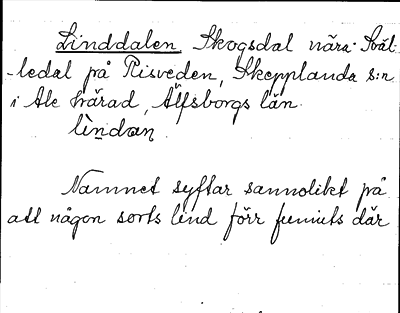 Linddalen Skogsdal nära Svält-
ledal på Risveden, Skepplanda s:n
i Ale härad, Älfsborgs län.
lìndan
Namnet syftar sannolikt på
att någon sorts lind förr funnits där